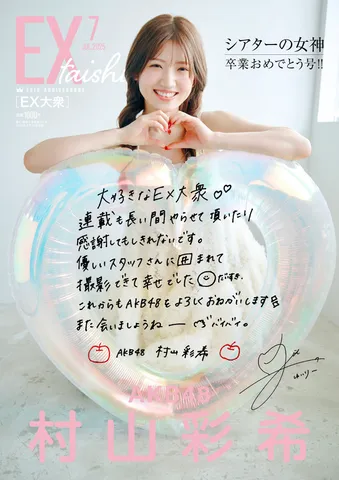 EX
taishu
7
JUL.2025
20TH ANNIVERSARY
[EX大衆]
シアターの女神
卒業おめでとう号!!
大好きなEX大衆♡♡
連載も長い間やらせて頂いたり
感謝してもしきれないです。
優しいスタッフさんに囲まれて
撮影できて幸せでした
これからもAKB48をよろしくおねがいします
また会いましょうね ― バイバイ。
AKB48 村山彩希
ゆいりー
AKB48
村山彩希